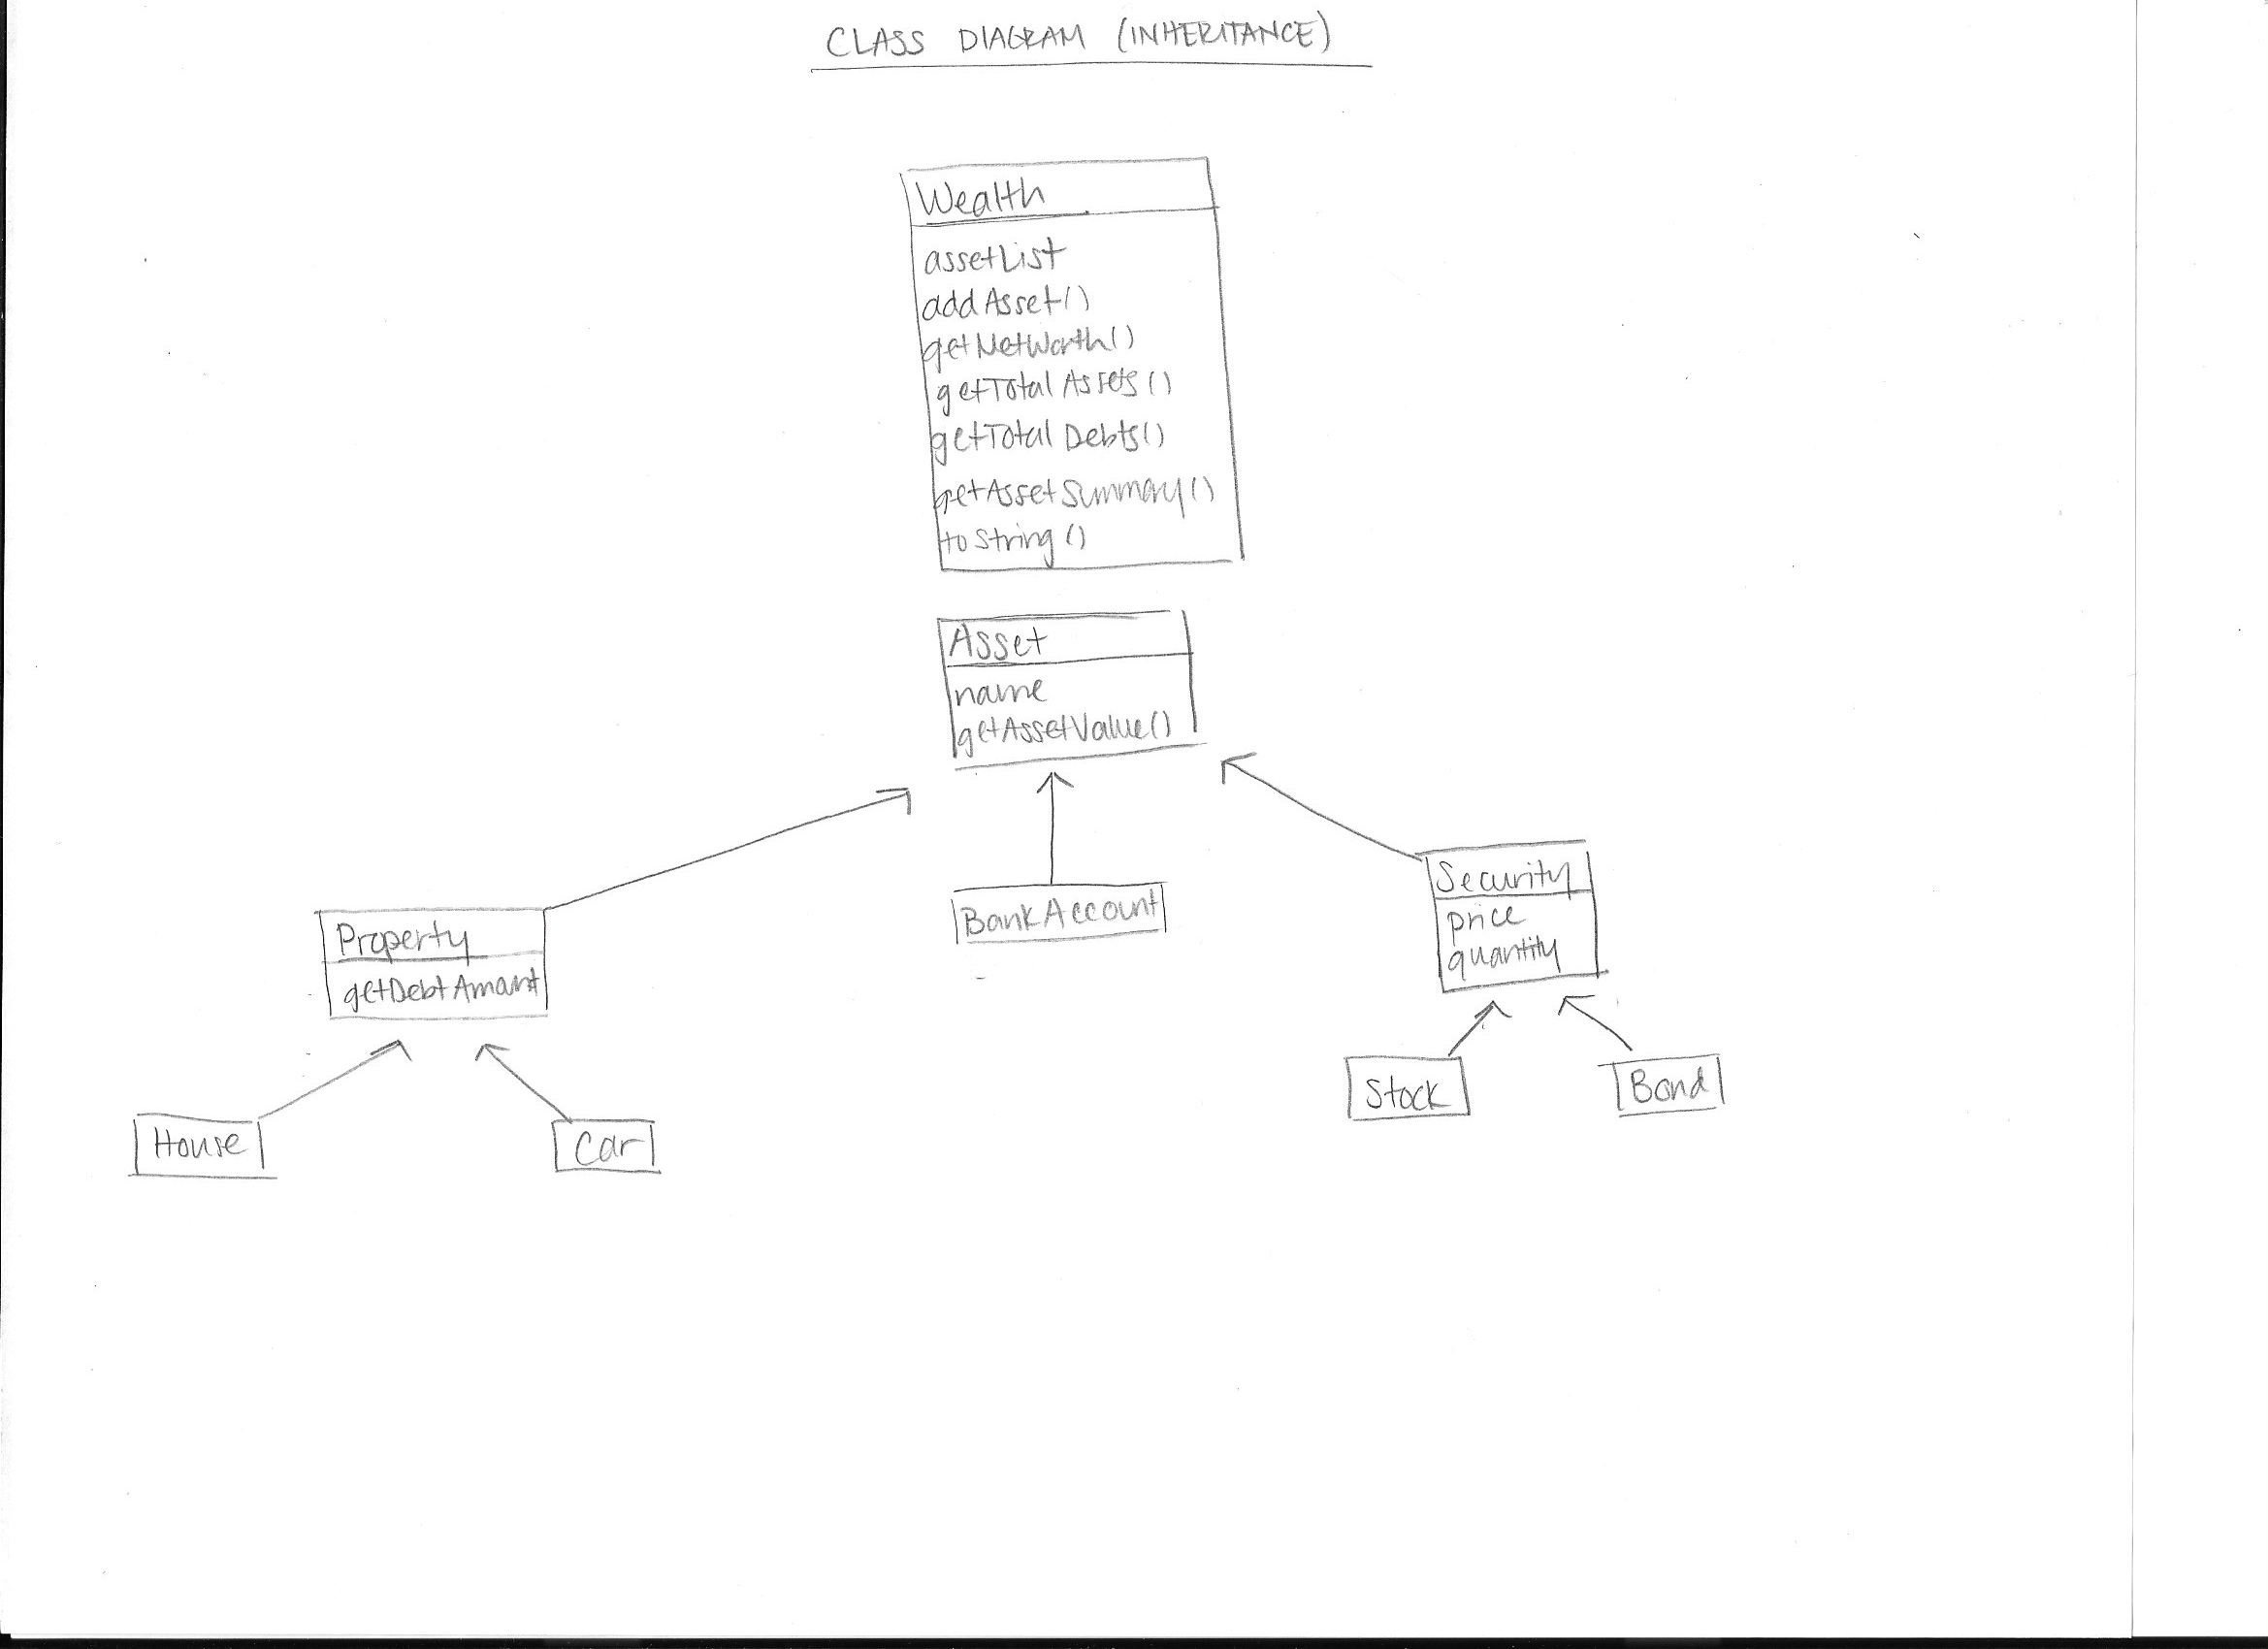 CLASS DIAGRAM (INHERITANCE)
Wealth
assetList
addAsset()
getNetWorth()
getTotalAssets()
getTotalDebts()
getAssetSummary()
toString()
Asset
name
getAssetValue()
Property
getDebtAmount
BankAccount
Security
price
quantity
House
Car
Stock
Bond